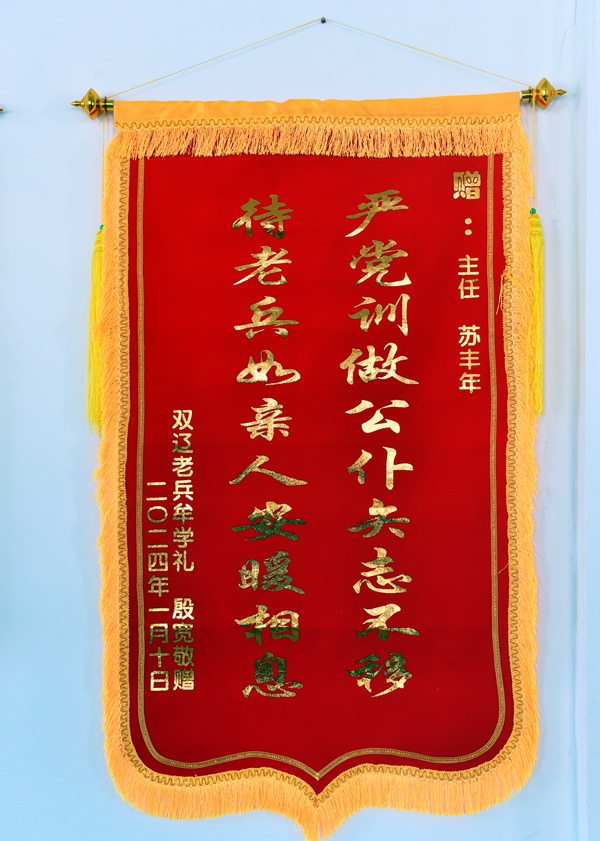 赠：主任 苏丰年
严党训做公仆矢志不移
待老兵如亲人安暖相息
双辽老兵牟学礼 殷宽敬赠
二〇二四年一月十日